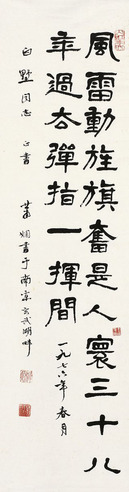 風雷動旌旗奮是人寰三十八
年過去彈指一揮間
一九七六年春月
白墅同志 正書
蕭嫻書于南京玄武湖畔